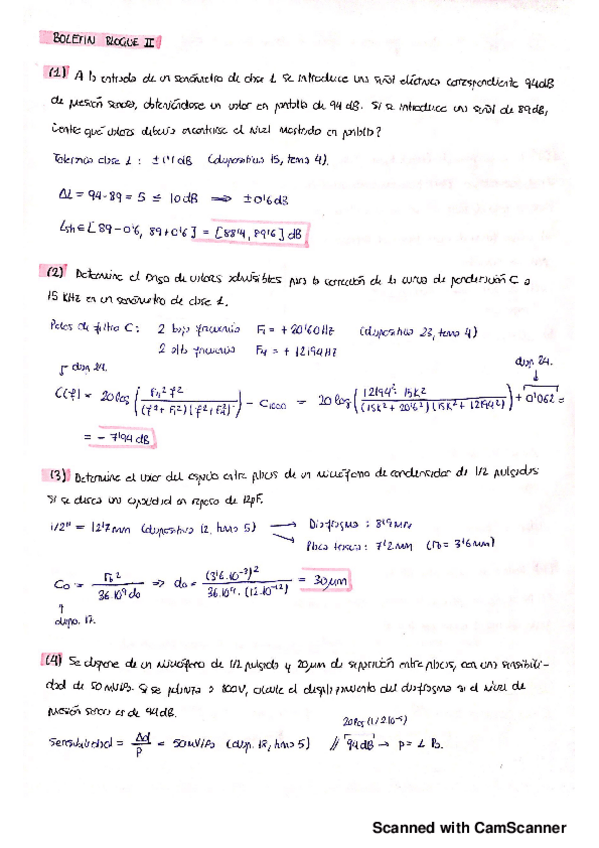 BOLETIN BLOQUE II
(1) A la entrada de un sonómetro de clase 1 se introduce una señal eléctrica correspondiente 94dB
de presión sonora, obteniéndose un valor en pantalla de 94 dB. Si se introduce una señal de 89dB,
¿entre qué valores debería encontrarse el nivel mostrado en pantalla?
Tolerancia clase 1 : ± 1'1 dB (diapositiva 15, tema 4).
ΔL = 94 - 89 = 5 ≤ 10 dB ⟹ ± 0'6 dB
Lsh ∈ [89 - 0'6, 89 + 0'6] = [88'4, 89'6] dB
(2) Determine el rango de valores admisibles para la corrección de la curva de ponderación C a
15 KHz en un sonómetro de clase 1.
Polos de filtro C: 2 baja frecuencia F1 = + 20'60 Hz (diapositiva 23, tema 4)
2 alta frecuencia F4 = + 12194 Hz
diap. 24. diap. 24.
C(f) = 20 log (F4² f² / (f² + F1²)(f² + F4²)) - C1000 = 20 log (12194² · 15K² / (15K² + 20'6²)(15K² + 12194²)) + 0'062 =
= - 7'94 dB
(3) Determine el valor del espacio entre placas de un micrófono de condensador de 1/2 pulgadas
si se desea una capacidad en reposo de 12pF.
1/2" = 12'7 mm (diapositiva 12, tema 5) → Diafragma : 8'9 mm
→ Placa trasera : 7'2 mm (rb = 3'6 mm)
C0 = rb² / 36·10⁹ d0 ⟹ d0 = (3'6·10⁻³)² / 36·10⁹·(12·10⁻¹²) = 30 µm
diapo. 17.
(4) Se dispone de un micrófono de 1/2 pulgada y 20µm de separación entre placas, con una sensibili-
dad de 50 mV/Pa. Si se polariza a 200V, calcule el desplazamiento del diafragma si el nivel de
presión sonora es de 94dB.
20 log (1/2·10⁻⁵)
Sensibilidad = Δd / p = 50 mV/Pa (diap. 18, tema 5) // 94dB → p = 1 Pa.
Scanned with CamScanner